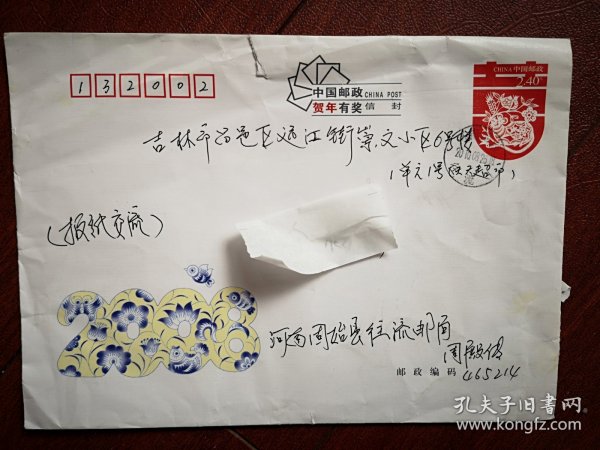 132002
中国邮政 CHINA POST
贺年有奖 信 封
CHINA 中国邮政
2.40
吉林市昌邑区通江街崇文小区6号楼
1单元1号
（报纸交流）
2008
河南固始县往流邮局
周殿传
邮 政 编 码 465214
孔夫子旧书网
www.kongfz.com